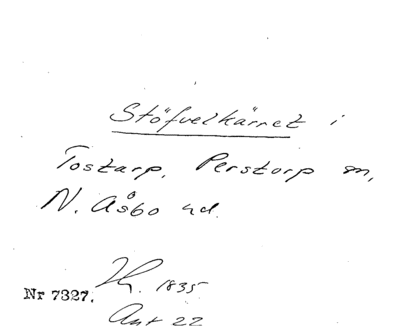 Stöfvelkärret i
Tostarp, Perstorp sn,
N. Åsbo hd.
Nr 7327.
1835
Ant 22